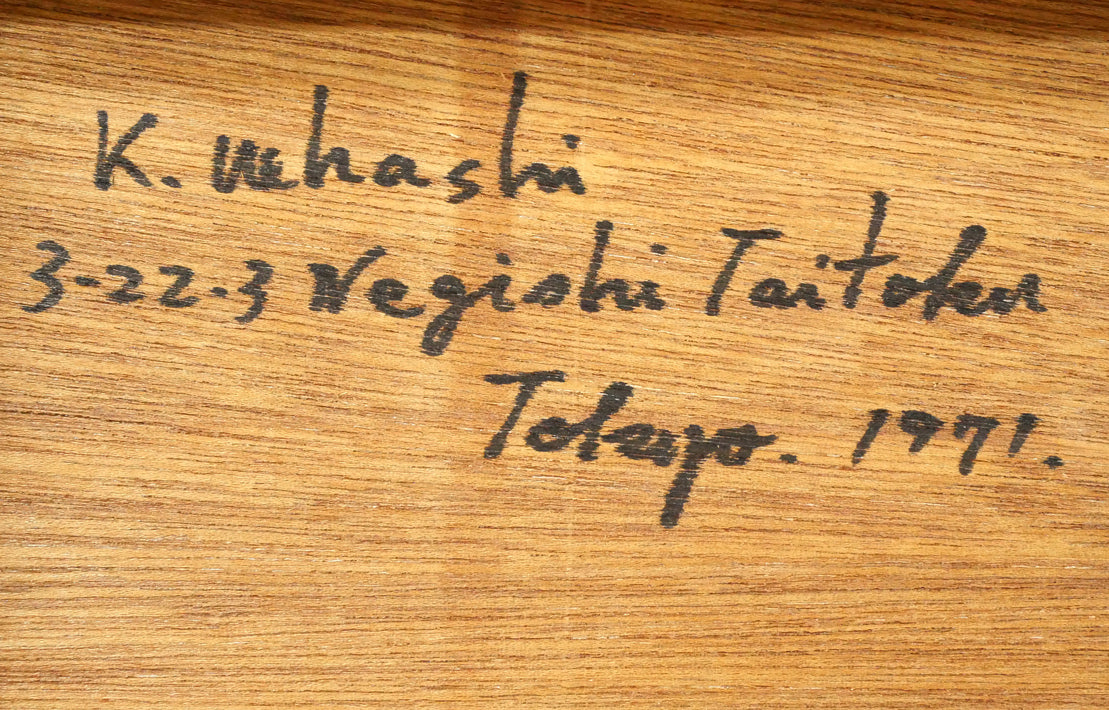 K. Uehashi
3-22-3 Negishi Taitoku
Tokyo. 1971.